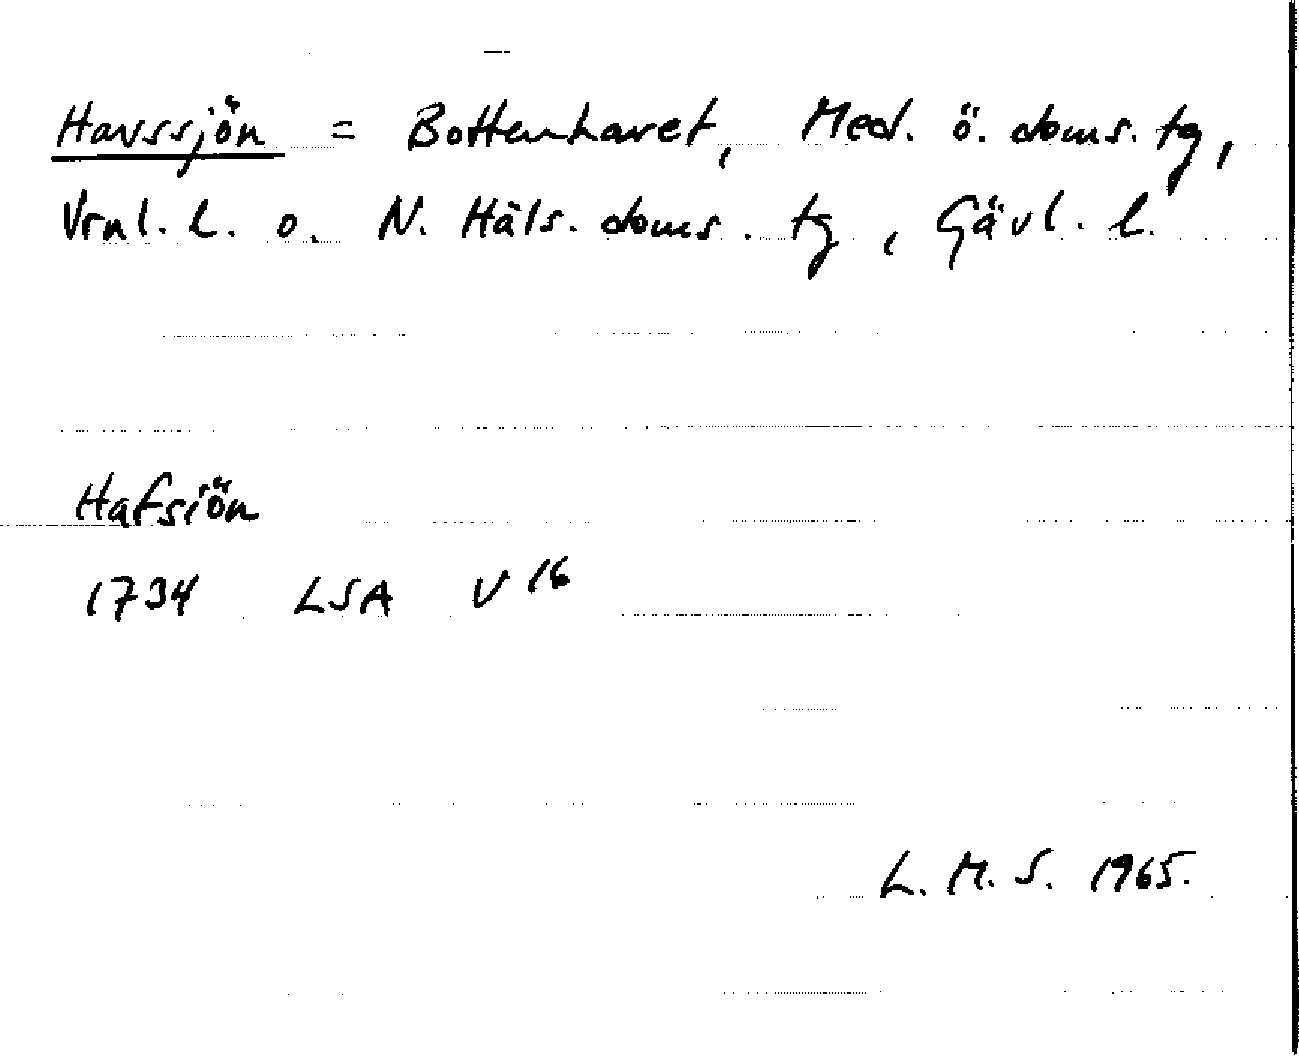 Havssjön = Bottenhavet, Med. ö. doms. tg,
Vrnl. l. o. N. Häls. doms. tg, Gävl. l.
Hafsiön
1734 LSA V 16
L. M. S. 1965.